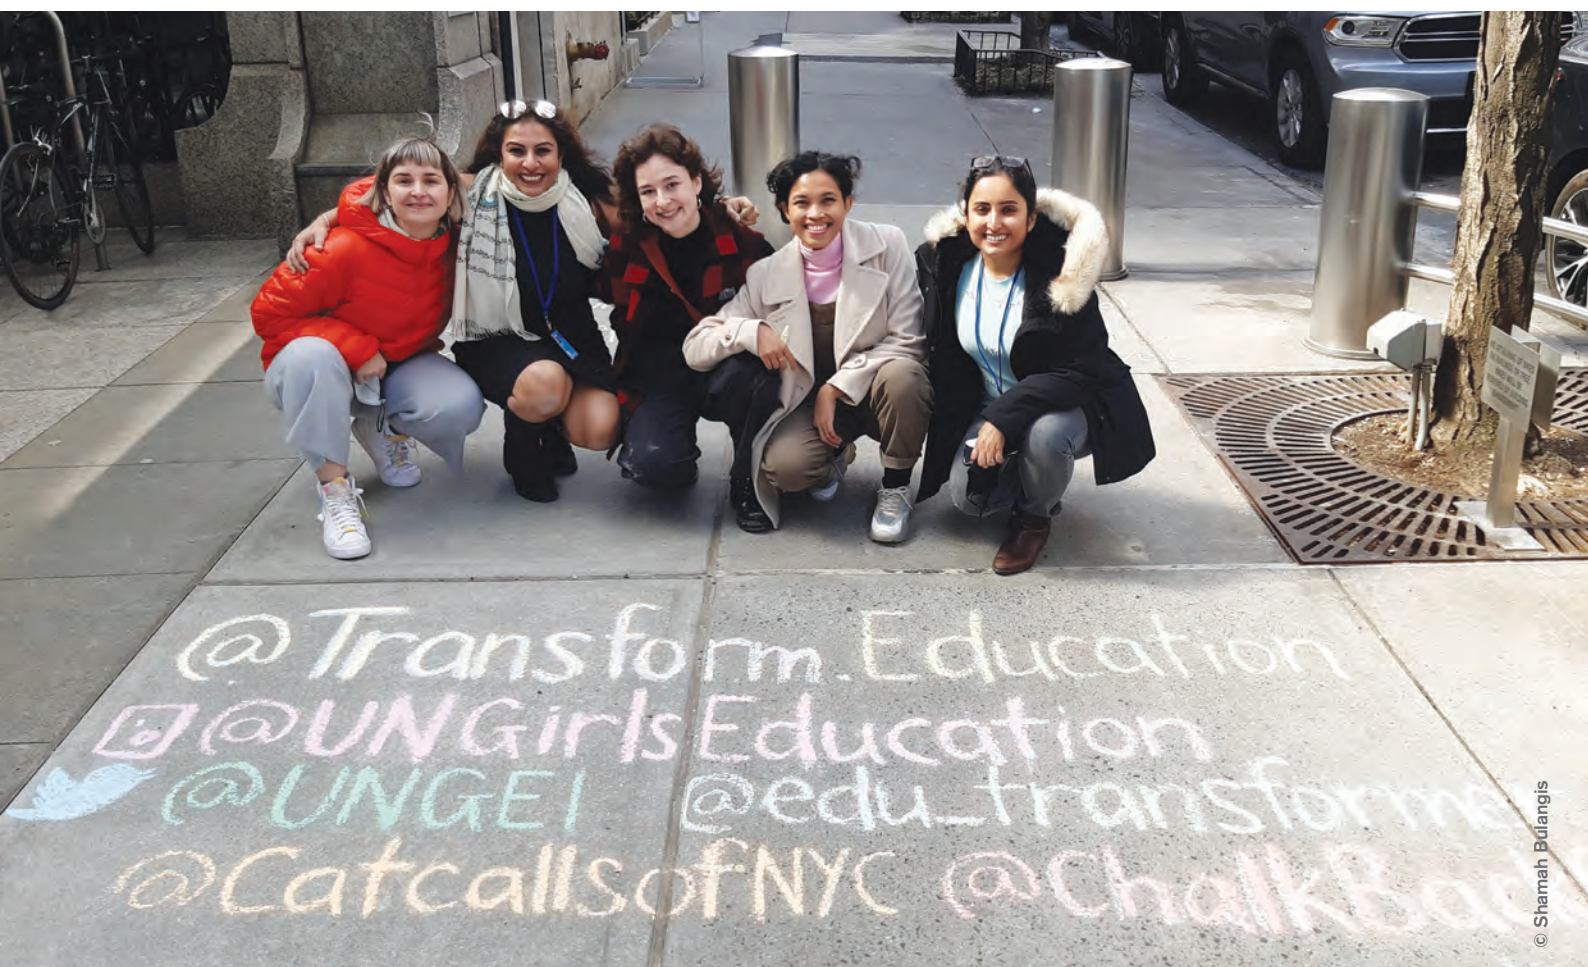 @Transform.Education
@UNGirlsEducation
@UNGEI @edu_transforme
@CatcallsofNYC @ChalkBack
© Shamah Bulangis